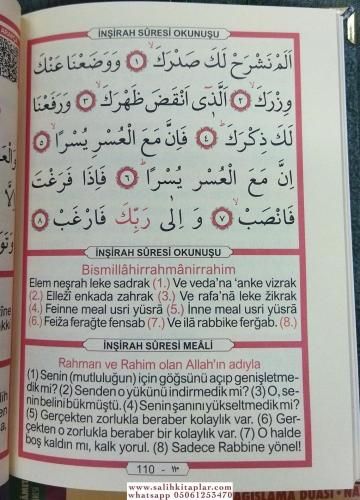 İNŞİRAH SÛRESİ OKUNUŞU
اَلَمْ نَشْرَحْ لَكَ صَدْرَكَ ۙ ﴿١﴾ وَوَضَعْنَا عَنْكَ
وِزْرَكَ ۙ ﴿٢﴾ اَلَّذ۪ٓى اَنْقَضَ ظَهْرَكَ ۙ ﴿٣﴾ وَرَفَعْنَا
لَكَ ذِكْرَكَ ۜ ﴿٤﴾ فَاِنَّ مَعَ الْعُسْرِ يُسْرًا ۙ ﴿٥﴾
اِنَّ مَعَ الْعُسْرِ يُسْرًا ۜ ﴿٦﴾ فَاِذَا فَرَغْتَ
فَانْصَبْ ۙ ﴿٧﴾ وَ اِلٰى رَبِّكَ فَارْغَبْ ﴿٨﴾
İNŞİRAH SÛRESİ OKUNUŞU
Bismillâhirrahmânirrahim
Elem neşrah leke sadrak (1.) Ve veda'na 'anke vizrak
(2.) Ellezî enkada zahrak (3.) Ve rafa'nâ leke zikrak
(4.) Feinne meal usri yüsrâ (5.) İnne meal usri yüsrâ
(6.) Feiża ferağte fensab (7.) Ve ilâ rabbike ferğab. (8.)
İNŞİRAH SÛRESİ MEÂLİ
Rahman ve Rahim olan Allah'ın adıyla
(1) Senin (mutluluğun) için göğsünü açıp genişletme-
dik mi? (2) Senden o yükünü indirmedik mi? (3) O, se-
nin belini bükmüştü. (4) Senin şanını yükseltmedik mi?
(5) Gerçekten zorlukla beraber bir kolaylık var. (6) Ger-
çekten o zorlukla beraber bir kolaylık var. (7) O halde
boş kaldın mı, kalk yorul. (8) Sadece Rabbine yönel!
110 - ١١٠
www.salihkitaplar.com
whatsapp 05061253470
BAĞIŞLAMA DUASI